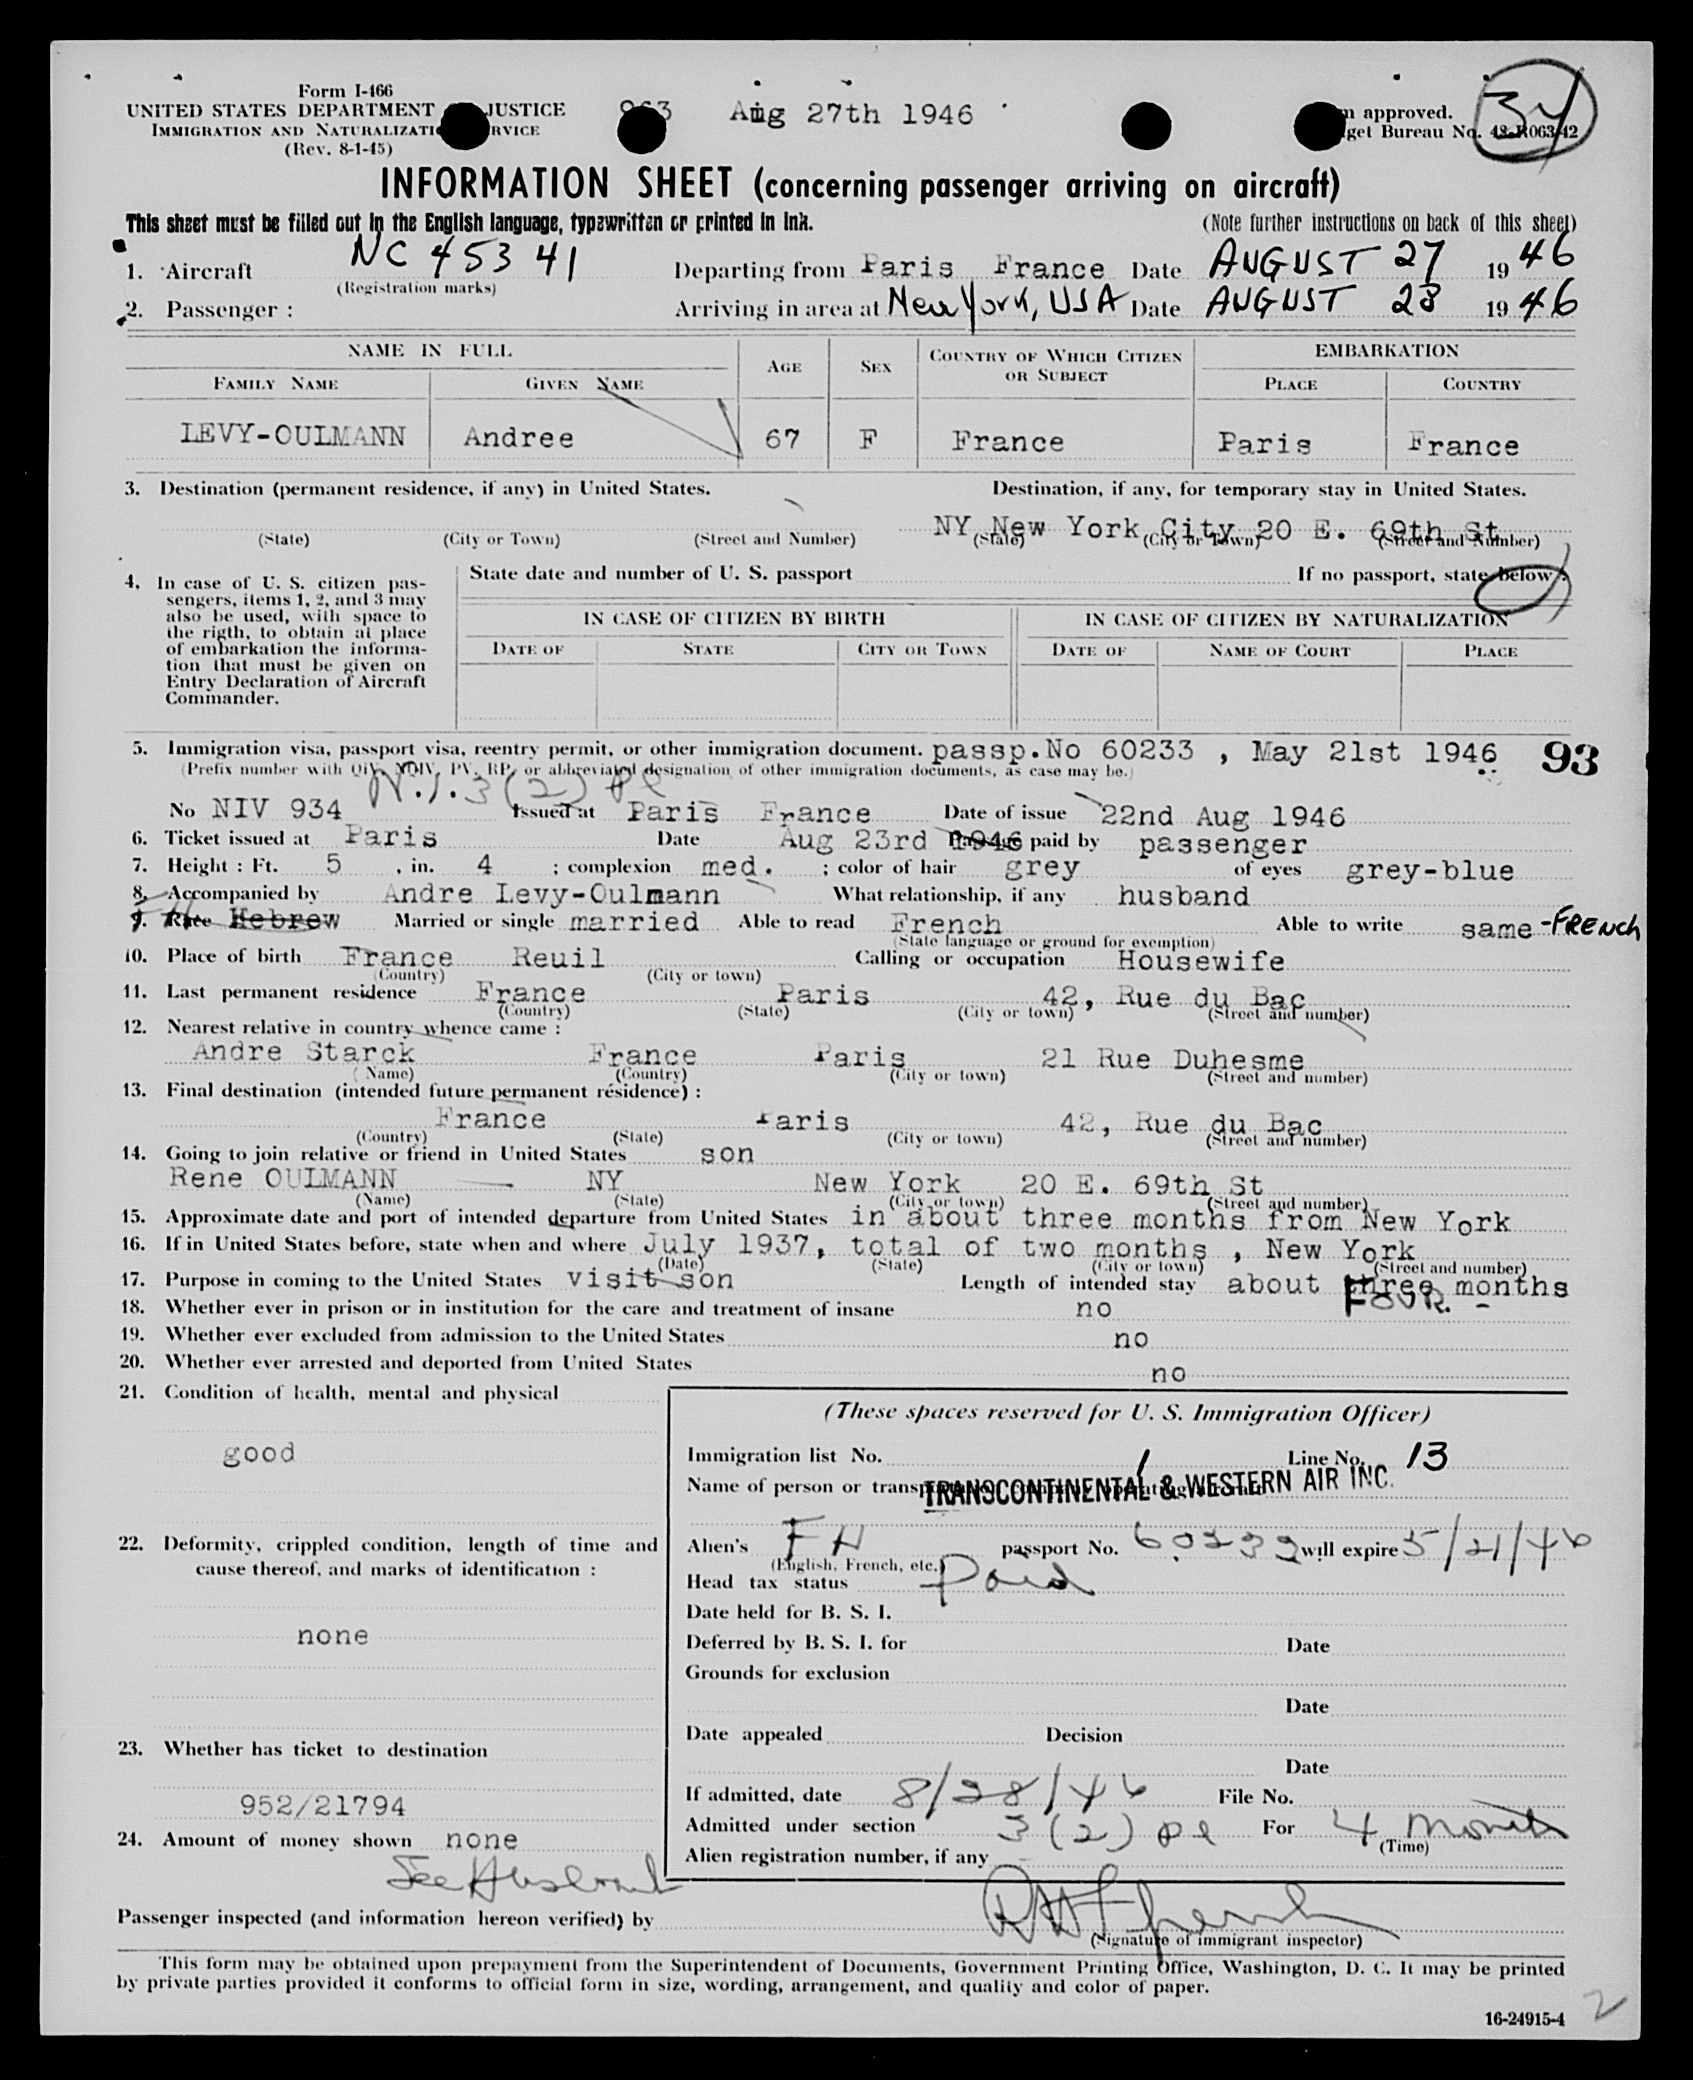 Form I-466
UNITED STATES DEPARTMENT JUSTICE
IMMIGRATION AND NATURALIZATI RVICE
(Rev. 8-1-45)
Aug 27th 1946
approved.
get Bureau No. 43-R063-42
INFORMATION SHEET (concerning passenger arriving on aircraft)
This sheet must be filled out in the English language, typewritten or printed in ink. (Note further instructions on back of this sheet)
1. Aircraft NC 45341 Departing from Paris France Date AUGUST 27 1946
(Registration marks)
2. Passenger : Arriving in area at New York, USA Date AUGUST 28 1946
NAME IN FULL AGE SEX COUNTRY OF WHICH CITIZEN OR SUBJECT EMBARKATION
FAMILY NAME GIVEN NAME PLACE COUNTRY
LEVY-OULMANN Andree 67 F France Paris France
3. Destination (permanent residence, if any) in United States. Destination, if any, for temporary stay in United States.
NY New York City 20 E. 69th St
(State) (City or Town) (Street and Number) (State) (City or Town) (Street and Number)
4. In case of U. S. citizen pas-
sengers, items 1, 2, and 3 may
also be used, with space to
the rigth, to obtain at place
of embarkation the informa-
tion that must be given on
Entry Declaration of Aircraft
Commander.
State date and number of U. S. passport If no passport, state below :
IN CASE OF CITIZEN BY BIRTH IN CASE OF CITIZEN BY NATURALIZATION
DATE OF STATE CITY OR TOWN DATE OF NAME OF COURT PLACE
5. Immigration visa, passport visa, reentry permit, or other immigration document. passp.No 60233 , May 21st 1946 93
(Prefix number with QIV, NQIV, PV, RP, or abbreviated designation of other immigration documents, as case may be.)
No NIV 934 Issued at Paris France Date of issue 22nd Aug 1946
6. Ticket issued at Paris Date Aug 23rd 1946 Passage paid by passenger
7. Height : Ft. 5 , in. 4 ; complexion med. ; color of hair grey of eyes grey-blue
8. Accompanied by Andre Levy-Oulmann What relationship, if any husband
9. Race Hebrew Married or single married Able to read French Able to write same -FRENCH
(State language or ground for exemption)
10. Place of birth France Reuil Calling or occupation Housewife
(Country) (City or town)
11. Last permanent residence France Paris 42, Rue du Bac
(Country) (State) (City or town) (Street and number)
12. Nearest relative in country whence came :
Andre Starck France Paris 21 Rue Duhesme
(Name) (Country) (City or town) (Street and number)
13. Final destination (intended future permanent résidence) :
France Paris 42, Rue du Bac
(Country) (State) (City or town) (Street and number)
14. Going to join relative or friend in United States son
Rene OULMANN NY New York 20 E. 69th St
(Name) (State) (City or town) (Street and number)
15. Approximate date and port of intended departure from United States in about three months from New York
16. If in United States before, state when and where July 1937, total of two months , New York
(Date) (State) (City or town) (Street and number)
17. Purpose in coming to the United States visit son Length of intended stay about three months
FOUR. -
18. Whether ever in prison or in institution for the care and treatment of insane no
19. Whether ever excluded from admission to the United States no
20. Whether ever arrested and deported from United States no
21. Condition of health, mental and physical
good
22. Deformity, crippled condition, length of time and
cause thereof, and marks of identification :
none
23. Whether has ticket to destination
952/21794
24. Amount of money shown none
See Husband
(These spaces reserved for U. S. Immigration Officer)
Immigration list No. 1 Line No. 13
Name of person or transportation company operating aircraft
TRANSCONTINENTAL & WESTERN AIR INC.
Alien's FH passport No. 60233 will expire 5/21/46
(English, French, etc.)
Head tax status Paid
Date held for B. S. I.
Deferred by B. S. I. for Date
Grounds for exclusion
Date
Date appealed Decision
Date
If admitted, date 8/28/46 File No.
Admitted under section 3(2) pl For 4 months
(Time)
Alien registration number, if any
Passenger inspected (and information hereon verified) by
(Signature of immigrant inspector)
This form may be obtained upon prepayment from the Superintendent of Documents, Government Printing Office, Washington, D. C. It may be printed
by private parties provided it conforms to official form in size, wording, arrangement, and quality and color of paper.
16-24915-4
2